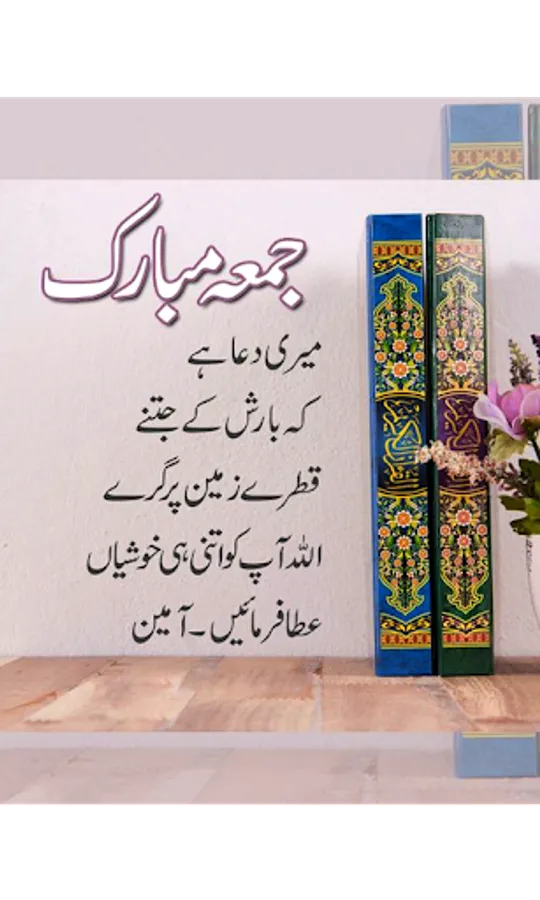 جمعہ مبارک
میری دعا ہے
کہ بارش کے جتنے
قطرے زمین پر گرے
اللہ آپ کو اتنی ہی خوشیاں
عطا فرمائیں۔ آمین